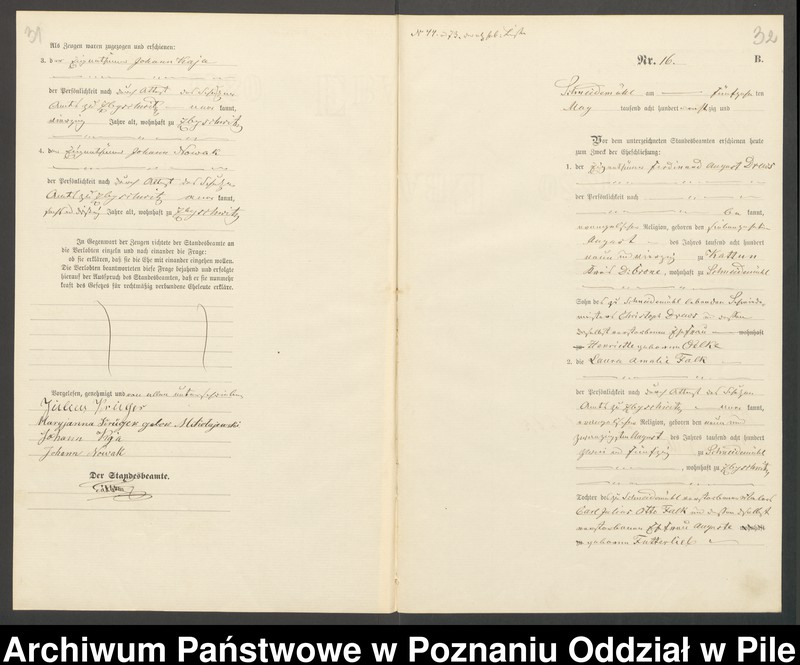 31
Als Zeugen waren zugezogen und erschienen:
3. der Eigenthümer Johann Kaja
der Persönlichkeit nach durch Attest des Schulzen
Amts zu Zbyschewitz aner kannt,
vierzig Jahre alt, wohnhaft zu Zbyschewitz
4. der Eigenthümer Johann Nowak
der Persönlichkeit nach durch Attest des Schulzen
Amts zu Zbyschewitz aner kannt,
Jahre alt, wohnhaft zu Zbyschewitz
In Gegenwart der Zeugen richtete der Standesbeamte an
die Verlobten einzeln und nach einander die Frage:
ob sie erklären, daß sie die Ehe mit einander eingehen wollen.
Die Verlobten beantworteten diese Frage bejahend und erfolgte
hierauf der Ausspruch des Standesbeamten, daß er sie nunmehr
kraft des Gesetzes für rechtmäßig verbundene Eheleute erkläre.
Vorgelesen, genehmigt und von allen unterschrieben
Julius Krüger
Maryjanna Krüger geboren Mikolajewski
Johann Kaja
Johann Nowak
Der Standesbeamte.
32
Nr. 16.
B.
Schneidemühl am fünfzehnten
May tausend acht hundert und
Vor dem unterzeichneten Standesbeamten erschienen heute
zum Zweck der Eheschließung:
1. der Eigenthümer Ferdinand August Draws
der Persönlichkeit nach
be kannt,
evangelischer Religion, geboren den siebenzehnten
August des Jahres tausend acht hundert
neun und vierzig zu Kattun
Kreis, wohnhaft zu Schneidemühl
Sohn des zu Schneidemühl lebenden Schneider-
meisters Christoph Draws und dessen
daselbst verstorbenen Ehefrau wohnhaft
Henriette geborenen Oelke
2. die Laura Amalie Falk
der Persönlichkeit nach durch Attest des Schulzen
Amts zu Zbyschewitz aner kannt,
evangelischer Religion, geboren den neun und
zwanzigsten August des Jahres tausend acht hundert
zwei und fünfzig zu Schneidemühl
, wohnhaft zu Zbyschewitz
Tochter des zu Schneidemühl verstorbenen
Carl Julius Otto Falk und dessen daselbst
verstorbenen Ehefrau Auguste wohnhaft
geborenen Futterlieb
Archiwum Państwowe w Poznaniu Oddział w Pile